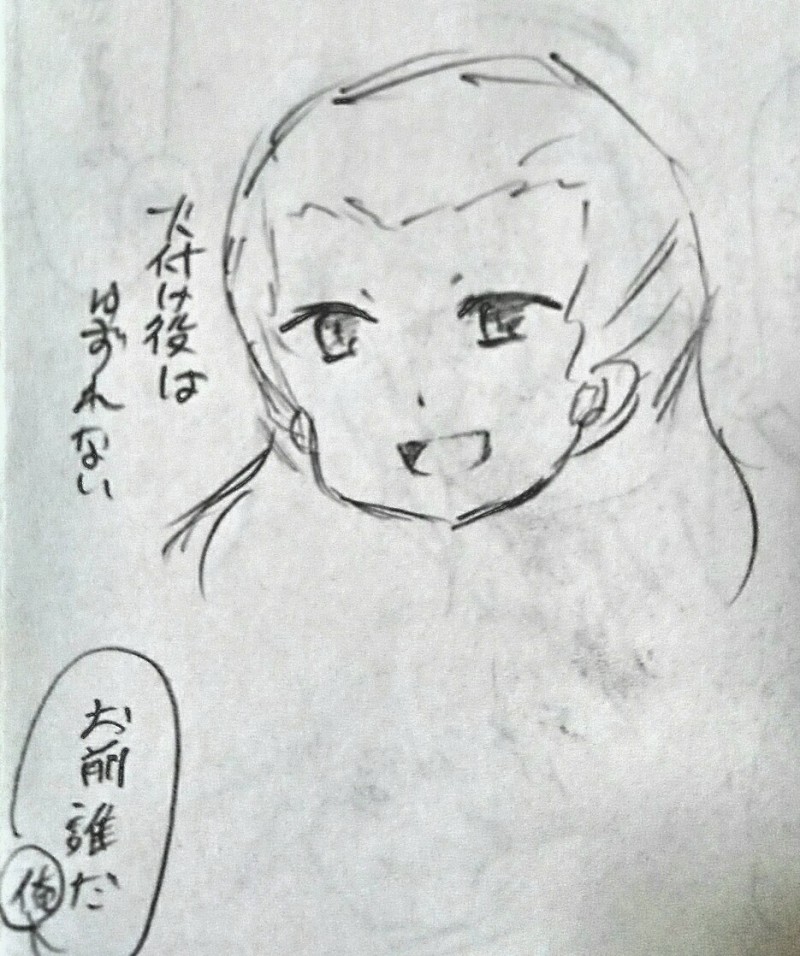 火付け役は
はずれない
お前誰だ
俺